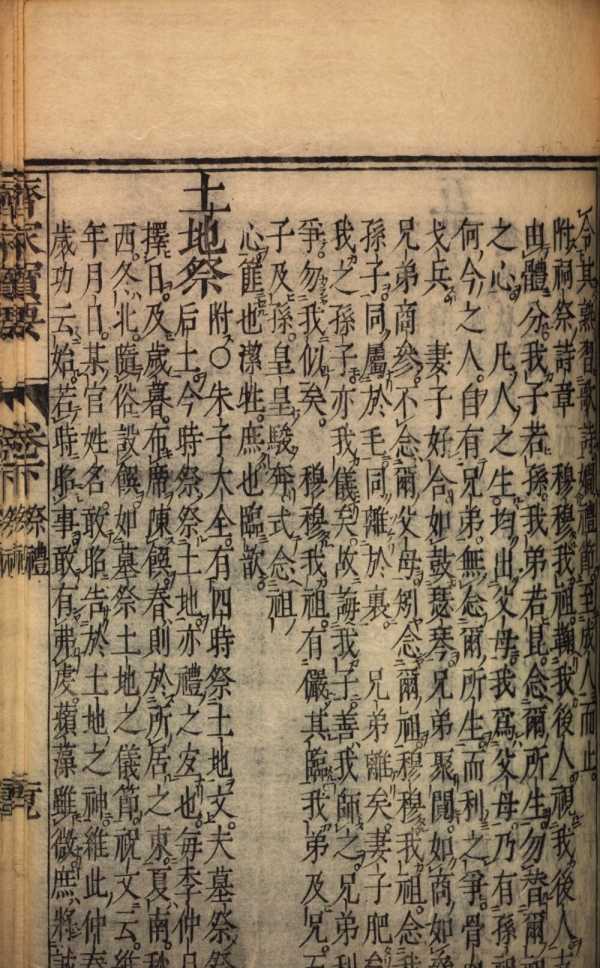 令其熟習歌詩嫺禮節至成人而止
附祠祭詩章　穆穆我祖鞠我後人視我後人
由體分我子若孫我弟若昆念爾所生勿替爾
之心　凡人之生均出父母我爲父母乃有孫
何今之人自有兄弟無念爾所生而利之爭骨
戈兵　妻子好合如鼓瑟琴兄弟聚鬩如商如
兄弟商參不念爾父母矧念爾祖穆穆我祖念我
孫子同屬於毛同離於裏　兄弟離矣妻子肥矣
我之孫子亦我儀矣故誨我子善我師之兄弟利
爭勿我似矣　穆穆我祖有儼其臨我弟及兄
子及孫皇皇駿奔式念祖
心匪也潔牲庶也臨歆
土地祭附○朱子大全有四時祭土地文夫墓祭祭
后土今時祭祭土地亦禮之宜也每季仲月
擇日及歲暮布席陳饌春則於所居之東夏南秋
西冬北隨俗設饌如墓祭土地之儀節祝文云維
年月日某官姓名敢昭告於土地之神維此仲春
歲功云始若時昭事敢有弗虔蘋藻雖微庶將誠
齊家寶要　卷下　祭禮